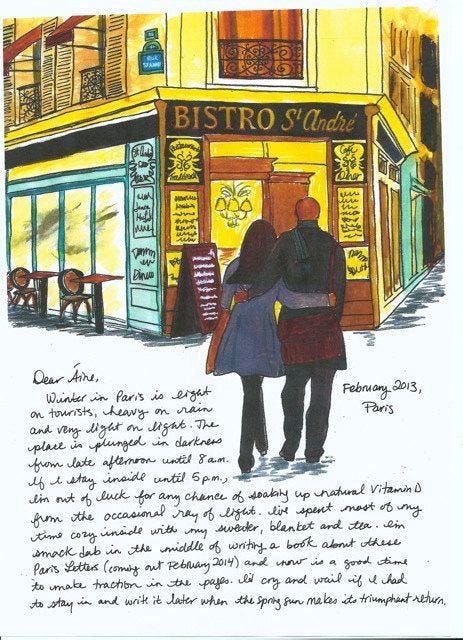 BISTRO St André
Café
February 2013,
Paris
Dear Áine,
Winter in Paris is light
on tourists, heavy on rain
and very light on light. The
place is plunged in darkness
from late afternoon until 8 am.
If I stay inside until 5 pm,
I'm out of luck for any chance of soaking up natural Vitamin D
from the occasional ray of light. I've spent most of my
time cozy inside with my sweater, blanket and tea. I'm
smack dab in the middle of writing a book about these
Paris Letters (coming out February 2014) and now is a good time
to make traction in the pages. I'd cry and wail if I had
to stay in and write it later when the spring sun makes its triumphant return.